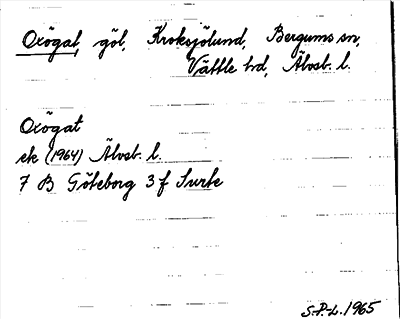 Oxögat, göl, Kroksjölund, Bergums sn,
Vättle hd, Älvsb. l.
Oxögat
ek (1964) Älvsb. l.
7 B Göteborg 3 f Surte
S.P.-L. 1965